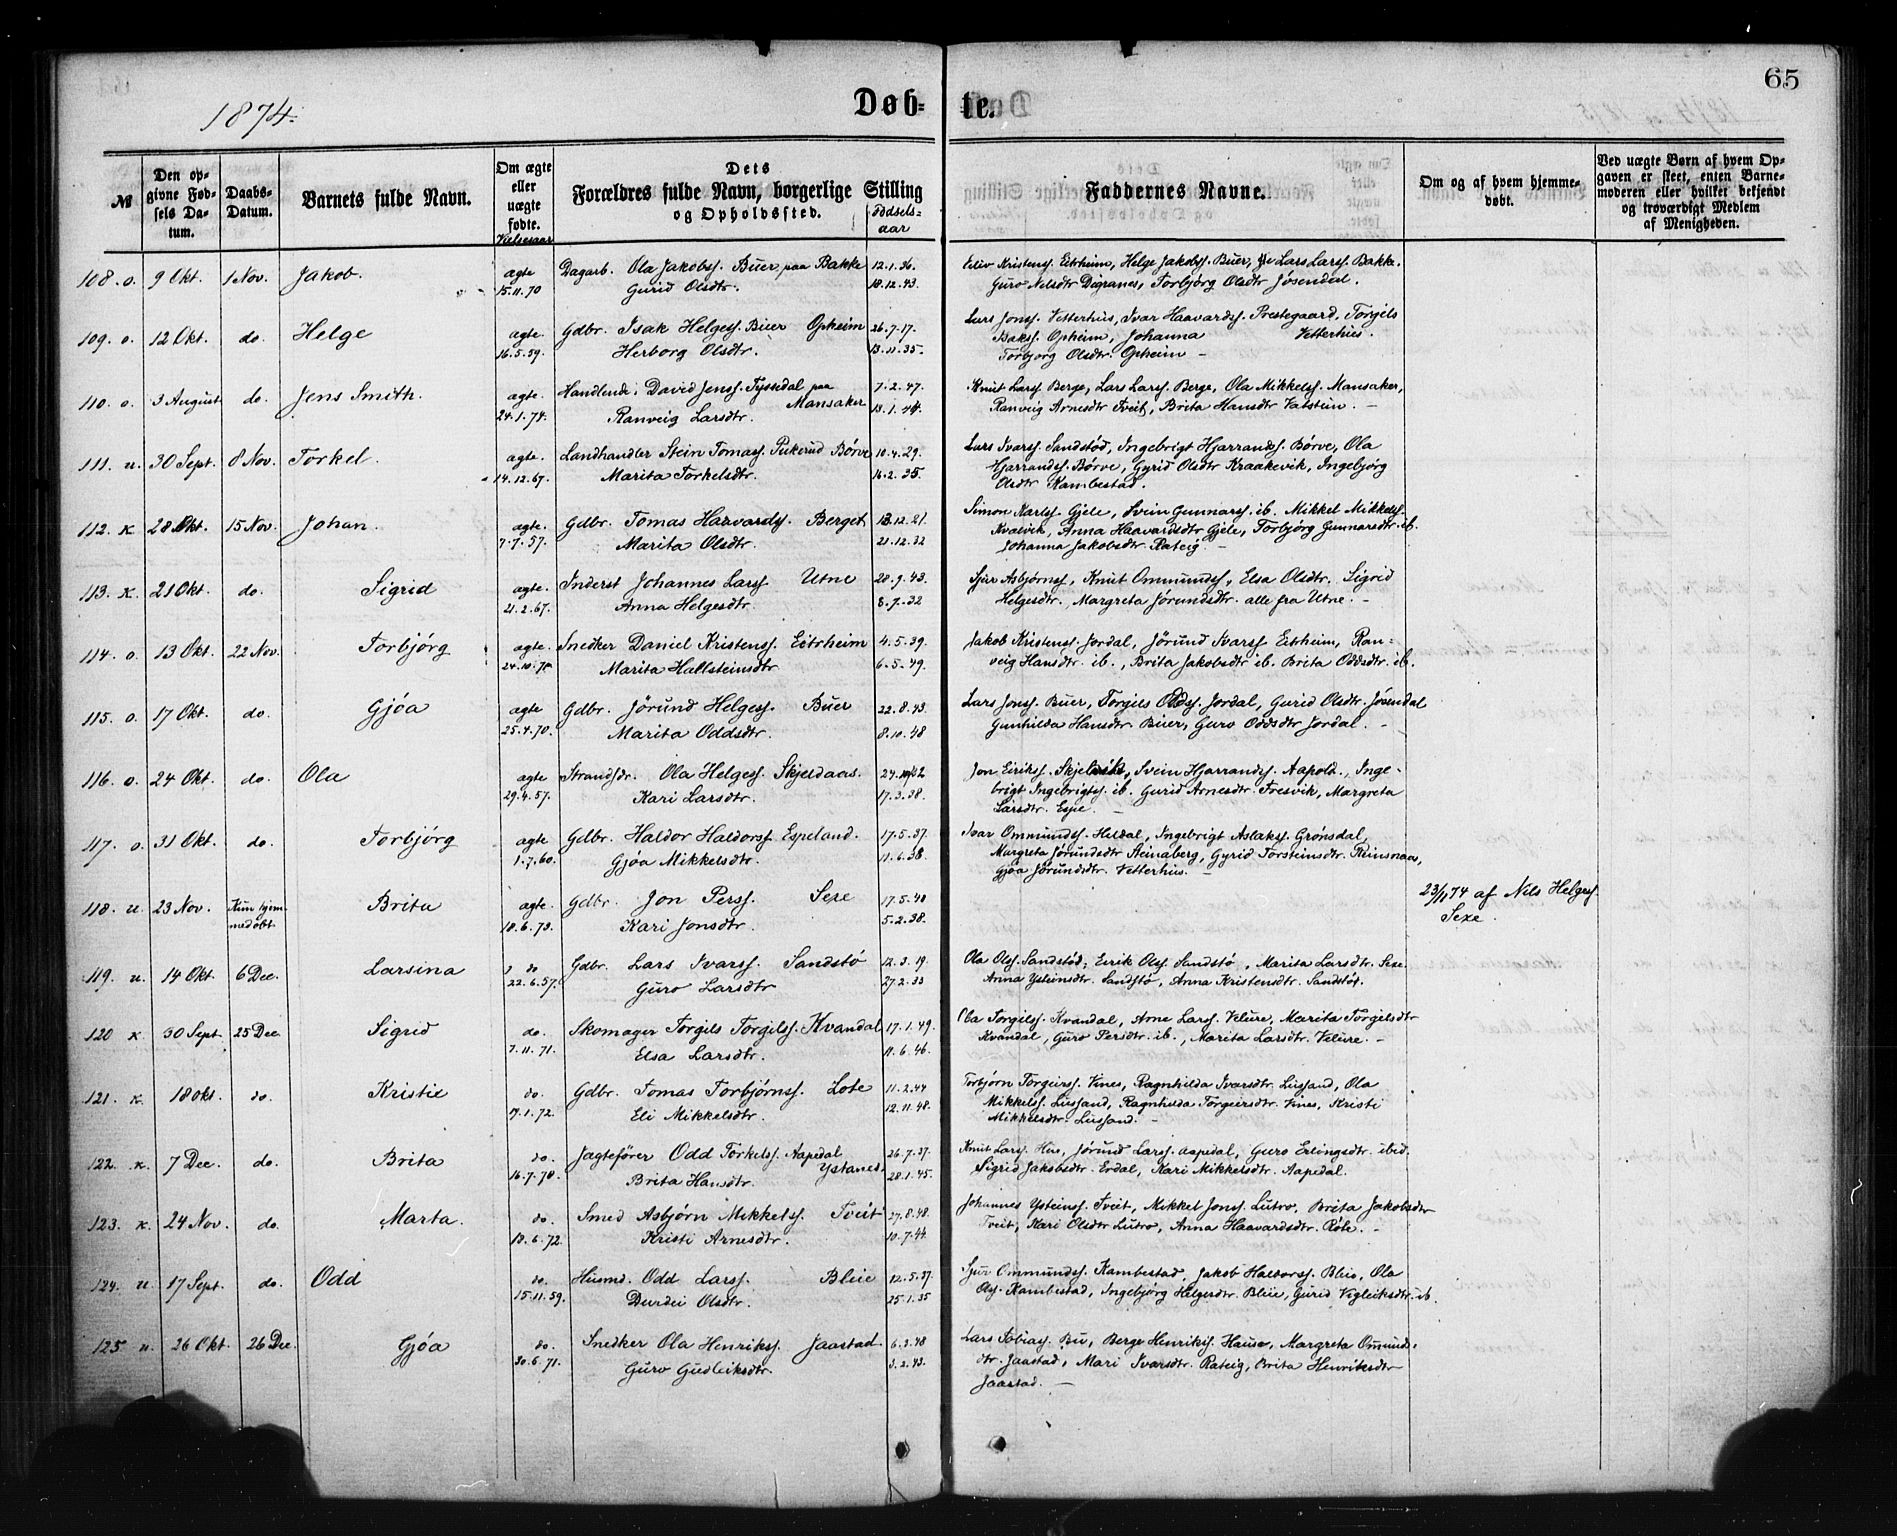 65
1874.
Døb-te.
№
Den op-givne Fød-sels Da-tum.
Daabs-Datum.
Barnets fulde Navn.
Om ægte eller uægte fødte.
Vielsesaar
Dets Forældres fulde Navn, borgerlige Stilling og Opholdssted.
Fødsels-aar
Faddernes Navne.
Om og af hvem hjemme-døbt.
Ved uægte Børn af hvem Op-gaven er skeet, enten Barne-moderen eller hvilket bekjendt og troværdigt Medlem af Menigheden.
108. o. 9 Okt. 1 Nov. Jakob. agte Dagarb. Ola Jakobss. Buer, paa Bakke 12.1.36. Eiliv Kristenss. Eitrheim, Helge Jakobss. Buer, Lars Larss. Bakke.
15.11.70 Gurid Olsdtr. 18.12.43. Guro Nelsdtr Digranes, Torbjørg Olsdtr Jøsendal.
109. o. 12 Okt. do. Helge agte. Gdbr. Isak Helgess. Buer Opheim 26.7.17. Lars Jonss. Vetterhus, Ivar Haavardss. Prestegaard, Torgils
16.5.59. Herborg Olsdtr. 13.11.35. Bakss. Opheim, Johanna Vetterhus.
Torbjørg Olsdtr. Opheim –
110. o. 3 August do. Jens Smith. agte. Handlende David Jenss. Tyssedal paa Mansaker 7.2.47. Knut Larss. Berge, Lars Larss. Berge, Ola Mikkelss. Mansaker,
24.1.74. Ranveig Larsdtr. 13.1.44. Ranveig Arnesdtr Tveit, Brita Hansdtr Vatstun. –
111. u. 30 Sept. 8 Nov. Torkel. agte. Landhandler Stein Tomass. Pukerud Børve 10.4.29. Lars Ivarss. Sandstød, Ingebrigt Hjarrandss. Børve, Ola
14.12.67. Marita Torkelsdtr. 16.2.35. Hjarrandss. Børve, Gyrid Olsdtr Kraakevik, Ingebjørg
Olsdtr Kambestad.
112. k 28 Okt. 15 Nov. Johan. agte. Gdbr. Tomas Haavardss. Berget 13.12.21. Simon Karlss. Gjele, Svein Gunnarss. ib. Mikkel Mikkelss.
7.7.57. Marita Olsdtr. 21.12.32 Kvalvik, Anna Haavardsdtr Gjele, Torbjørg Gunnarsdtr. ib.
Johanna Jakobsdtr. Rateig. –
113. k. 21 Okt. do. Sigrid agte. Inderst Johannes Larss. Utne 28.9.43. Sjur Asbjørnss, Knut Ommundss, Elsa Olsdtr. Sigrid
21.2.67. Anna Helgesdtr. 8.7.32 Helgesdtr. Margreta Jørundsdtr. alle fra Utne. –
114. o. 13 Okt. 22 Nov. Torbjørg agte. Snedker Daniel Kristenss. Eitrheim 4.5.39. Jakob Kristenss. Jordal, Jørund Ivarss Eitrheim, Ran-
24.10.70 Marita Hallsteinsdtr 6.5.49. veig Hansdtr. ib., Brita Jakobsdtr ib. Brita Oddsdtr. ib.
115. o. 17 Okt. do. Gjøa agte Gdbr. Jørund Helgess. Buer 22.8.43. Lars Jonss. Buer, Torgils Oddss. Jordal, Gurid Olsdtr. Jøsendal
25.4.70. Marita Oddsdtr. 8.10.48 Gunhilda Hansdtr. Buer, Guro Oddsdtr Jordal. –
116. o. 24 Okt. do. Ola agte Strandsdr. Ola Helgess. Skjeldaas Jon Eirikss. Skjelvik, Svein Hjarrandss. Aapold., Inge-
29.4.57. Kari Larsdtr. 17.3.38. brigt Ingebrigtss. ib. Gurid Arnesdtr. Tresvik, Margreta
Larsdtr. Espe. –
117. o. 31 Okt. do. Torbjørg agte Gdbr. Haldor Haldorss. Espeland. 17.5.37. Ivar Ommundss. Hildal, Ingebrigt Aslakss. Grønsdal,
1.7.60. Gjøa Mikkelsdtr. 11.6.38. Margreta Jørundsdtr Steinaberg, Gyrid Torsteinsdtr. Reinsnaas,
Gjøa Jørundsdtr. Vetterhus. –
118. u. 23 Nov. Kun hjem-medøbt Brita agte. Gdbr. Jon Perss. Sexe 17.5.40 23/11 74 af Nils Helgess.
18.6.73. Kari Jonsdtr. 5.2.38. Sexe.
119. u. 14 Okt. 6 Dec. Larsina do Gdbr. Lars Ivarss. Sandstø 12.3.19. Ola Olss. Sandstød, Eirik Olss. Sandstø, Marita Larsdtr. Sexe.
22.6.57. Guro Larsdtr 27.2.33 Anna Ysteinsdtr. Sandstø, Anna Kristensdtr. Sandstøt.
120 k. 30 Sept. 25 Dec. Sigrid do. Skomager Torgils Torgilss. Kvandal 17.1.49. Ola Torgilss. Kvandal, Arne Larss. Velure, Marita Torgilsdtr
7.11.71. Elsa Larsdtr. 11.6.46. Kvandal, Guro Persdtr. ib., Marita Larsdtr. Velure. –
121. k. 18 Okt. do. Kristie do. Gdbr. Tomas Torbjørnss. Lote 11.2.44 Torbjørn Torgeirss. Vines, Ragnhilda Ivarsdtr. Lussand, Ola
17.1.72. Eli Mikkelsdtr. 12.11.48. Mikkelss. Lussand, Ragnhilda Torgeirsdtr. Vines, Kristi
Mikkelsdtr Lussand. –
122. k. 7 Dec. do. Brita do. Jagtefører Odd Torkelss. Aapedal Ystanes. 26.7.37. Knut Larss. Hus, Jørund Larss. Aapedal, Guro Erlingsdtr. ibid.
16.7.70. Brita Hansdtr. 28.1.45. Sigrid Jakobsdtr. Erdal, Kari Mikkelsdtr. Aapedal.
123. k. 24 Nov. do. Marta. do. Smed Asbjørn Mikkelss. Tveit 27.8.48. Johannes Ysteinss. Tveit, Mikkel Jonss. Lutro, Brita Jakobsdtr
13.6.72. Kristi Arnesdtr. 10.7.44. Tveit, Kari Olsdtr Lutro, Anna Haavardsdtr. Røte. –
124. u. 17 Sept. do. Odd do. Husmd. Odd Larss. Bleie 12.5.37. Sjur Ommundss. Kambestad, Jakob Haldorss. Bleie, Ola
15.11.59. Durdei Olsdtr. 25.1.35 Olss. Kambestad, Ingebjørg Helgesdtr. Bleie, Gurid Vigleiksdtr. ib.
125 u. 26 Okt. 26 Dec. Gjøa do. Snedker Ola Henrikss. Jaastad. 6.3.48 Lars Tobiass. Bu, Berge Henrikss. Hauso, Margreta Omunds-
30.6.71. Guro Gudleiksdtr. 3.2.43. dtr. Jaastad, Mari Ivarsdtr. Rateig, Brita Henriksdtr
Jaastad. –